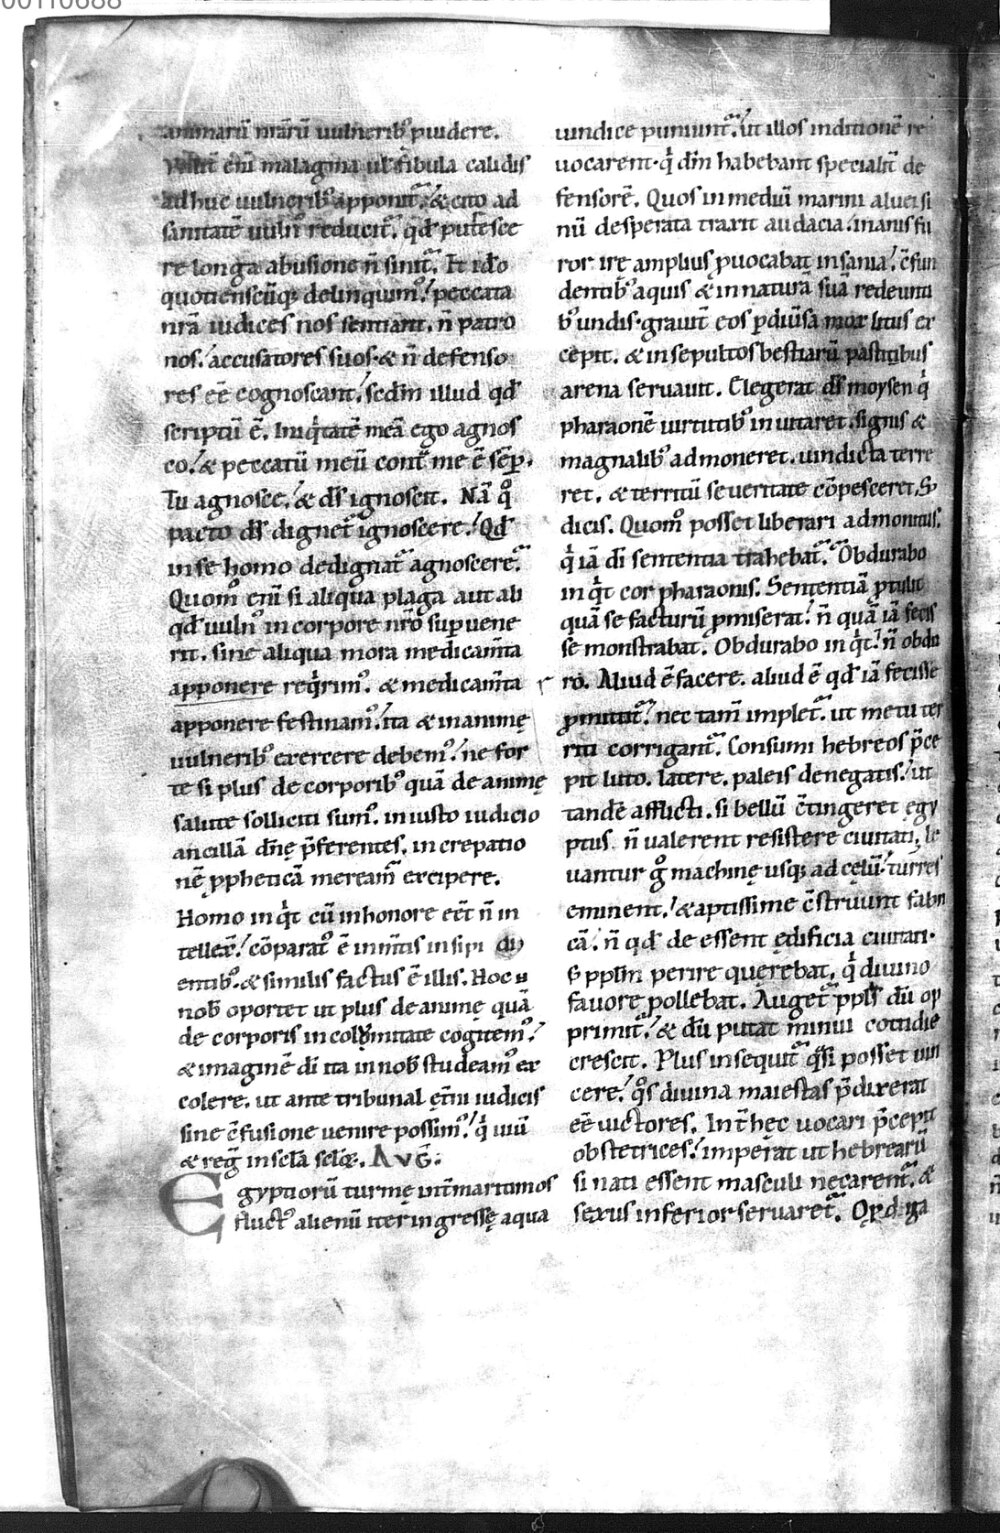 00110688
animarū nr̄arū uulnerib; puidere.
enī malagma ul fibula calidis
adhuc uulnerib; apponit᷑. & cito ad
sanitatē uuln᷒ reducit᷑. qd̄ putresce
re longa abusione n̄ sinit᷑. Et ido
quotienscūq; delinquim᷒. peccata
nr̄a iudices nos sentiant. n̄ patro
nos. accusatores suos. & n̄ defenso
res eē cognoscant. sedm illud qd̄
scriptū ē. Iniq̇tatē meā ego agnos
co. & peccatū meū cont᷑ me ē sēp.
Tu agnosce. & ds̄ ignoscit. Nā q̊
pacto ds̄ dignet᷑ ignoscere. Qd̄
in se homo dedignat᷑ agnoscere.
Quom̊ eni si aliqua plaga aut ali
qd̄ uuln᷒ in corpore nr̄o supuene
rit. sine aliqua mora medicam̄ta
apponere req̇rim᷒. & medicam̄ta
apponere festinam᷒. ita & in animę
uulnerib; exercere debem᷒. ne for
te si plus de corporib; quā de animę
salute solliciti sum᷒. iniusto iudicio
ancillā dn̄ę p̄ferentes. increpatio
nē ppheticā meream᷑ excipere.
Homo inq̇t cū in honore eēt n̄ in
tellex̄. cōparat᷒ ē iumt̄is insipi di
entib;. & similis factus ē illis. Hoc
nob̄ oportet ut plus de animę quā
de corporis incolumitate cogitem᷒.
& imaginē dī ita in nob̄ studeam᷒ ex
colere. ut ante tribunal ęt̄ni iudicis
sine c̄fusione uenire possim᷒. q̇ uiū
& reg᷑ in scl̄a sclo̧ꝝ. AVḠ.
Egyptiorū turmę int̄ maritimos
fluct᷒ alienū iter ingressę aqua
uindice puniunt᷑. ut illos in ditionē re
uocarent. q̇ dm̄ habebant specialit̄ de
fensorē. Quos in mediū marini aluei si
nū desperata traxit audacia. inanis fu
ror. irę amplius puocabat insania. c̄fun
dentib; aquis & in naturā suā redeunti
b; undis. grauit̄ eos p diuersa mox litus ex
cepit. & insepultos bestiarū pastibus
arena seruauit. Elegerat ds̄ moysen q̇
pharaonē uirtutib; inuitaret. signis &
magnalib; admoneret. uindicta terre
ret. & territū seueritate cōpesceret. S;
dicis. Quom̊ posset liberari admonitus.
q̇ iā dī sententia trahebat᷑. Obdurabo
inq̇t cor pharaonis. Sententiā ptulit
quā se facturū pmiserat. n̄ quā iā fecis
se monstrabat. Obdurabo inq̇t. n̄ obdu
ro. Aliud ē facere. aliud ē qd̄ iā fecisse
pmittit᷑. nec tam̄ implet᷑. ut metu ter
riti corrigant᷑. Consumi hebreos p̄ce
pit luto. latere. paleis denegatis. ut
tandē afflicti. si bellū c̄tingeret ęgy
ptus. n̄ ualerent resistere ciuitati. le
uantur g̊ machinę usq; ad cęlū. turres
eminent. & aptissime c̄struunt fabri
cā. n̄ qd̄ de essent ędificia ciuitati.
S; pplm̄ perire quęrebat. q̇ diuino
fauore pollebat. Auget᷑ ppls̄ dū op
primit᷑. & dū putat minui cotidie
crescit. Plus insequit᷑ q̄si posset uin
cere. q̊s diuina maiestas p̄dixerat
eē uictores. Int̄ hec uocari p̄cepit
obstetrices. imperat ut hebrearū
si nati essent masculi necarent᷑. &
sexus inferior seruaret᷑.